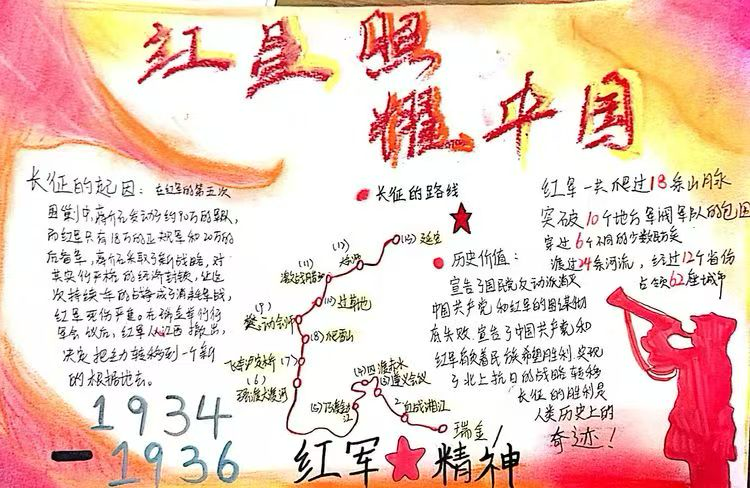 红星照
耀中国
长征的起因：在红军的第五次
围剿中,蒋介石发动了约90万的军队,
而红军只有18万的正规军和20万的
后备军，蒋介石采取了新战略，对
其实行严格的经济封锁，让这
次持续一年的战争成了消耗战,
红军死伤严重。在
军会议后，红军从江西撤出,
决定把主力转移到一个新
的根据地去。
1934
—1936
长征的路线
(14)延安
(13)
(11)
(10)过草地
(9)
(8)爬雪山
飞夺泸定桥(7)
(6)
强渡大渡河
(5)巧渡金沙江
(4)四渡赤水
(3)遵义会议
2血战湘江
瑞金！
红军★精神
历史价值：
宣告了国民党反动派消灭
中国共产党和红军的图谋彻
底失败,宣告了中国共产党和
红军肩负着民族希望胜利实现
了北上抗日的战略转移
长征的胜利是
人类历史上的
奇迹！
红军一共爬过18条山脉
突破10个地方军阀军队的包围
穿过6个不同的少数民族
渡过24条河流，经过12个省份
占领62座城市